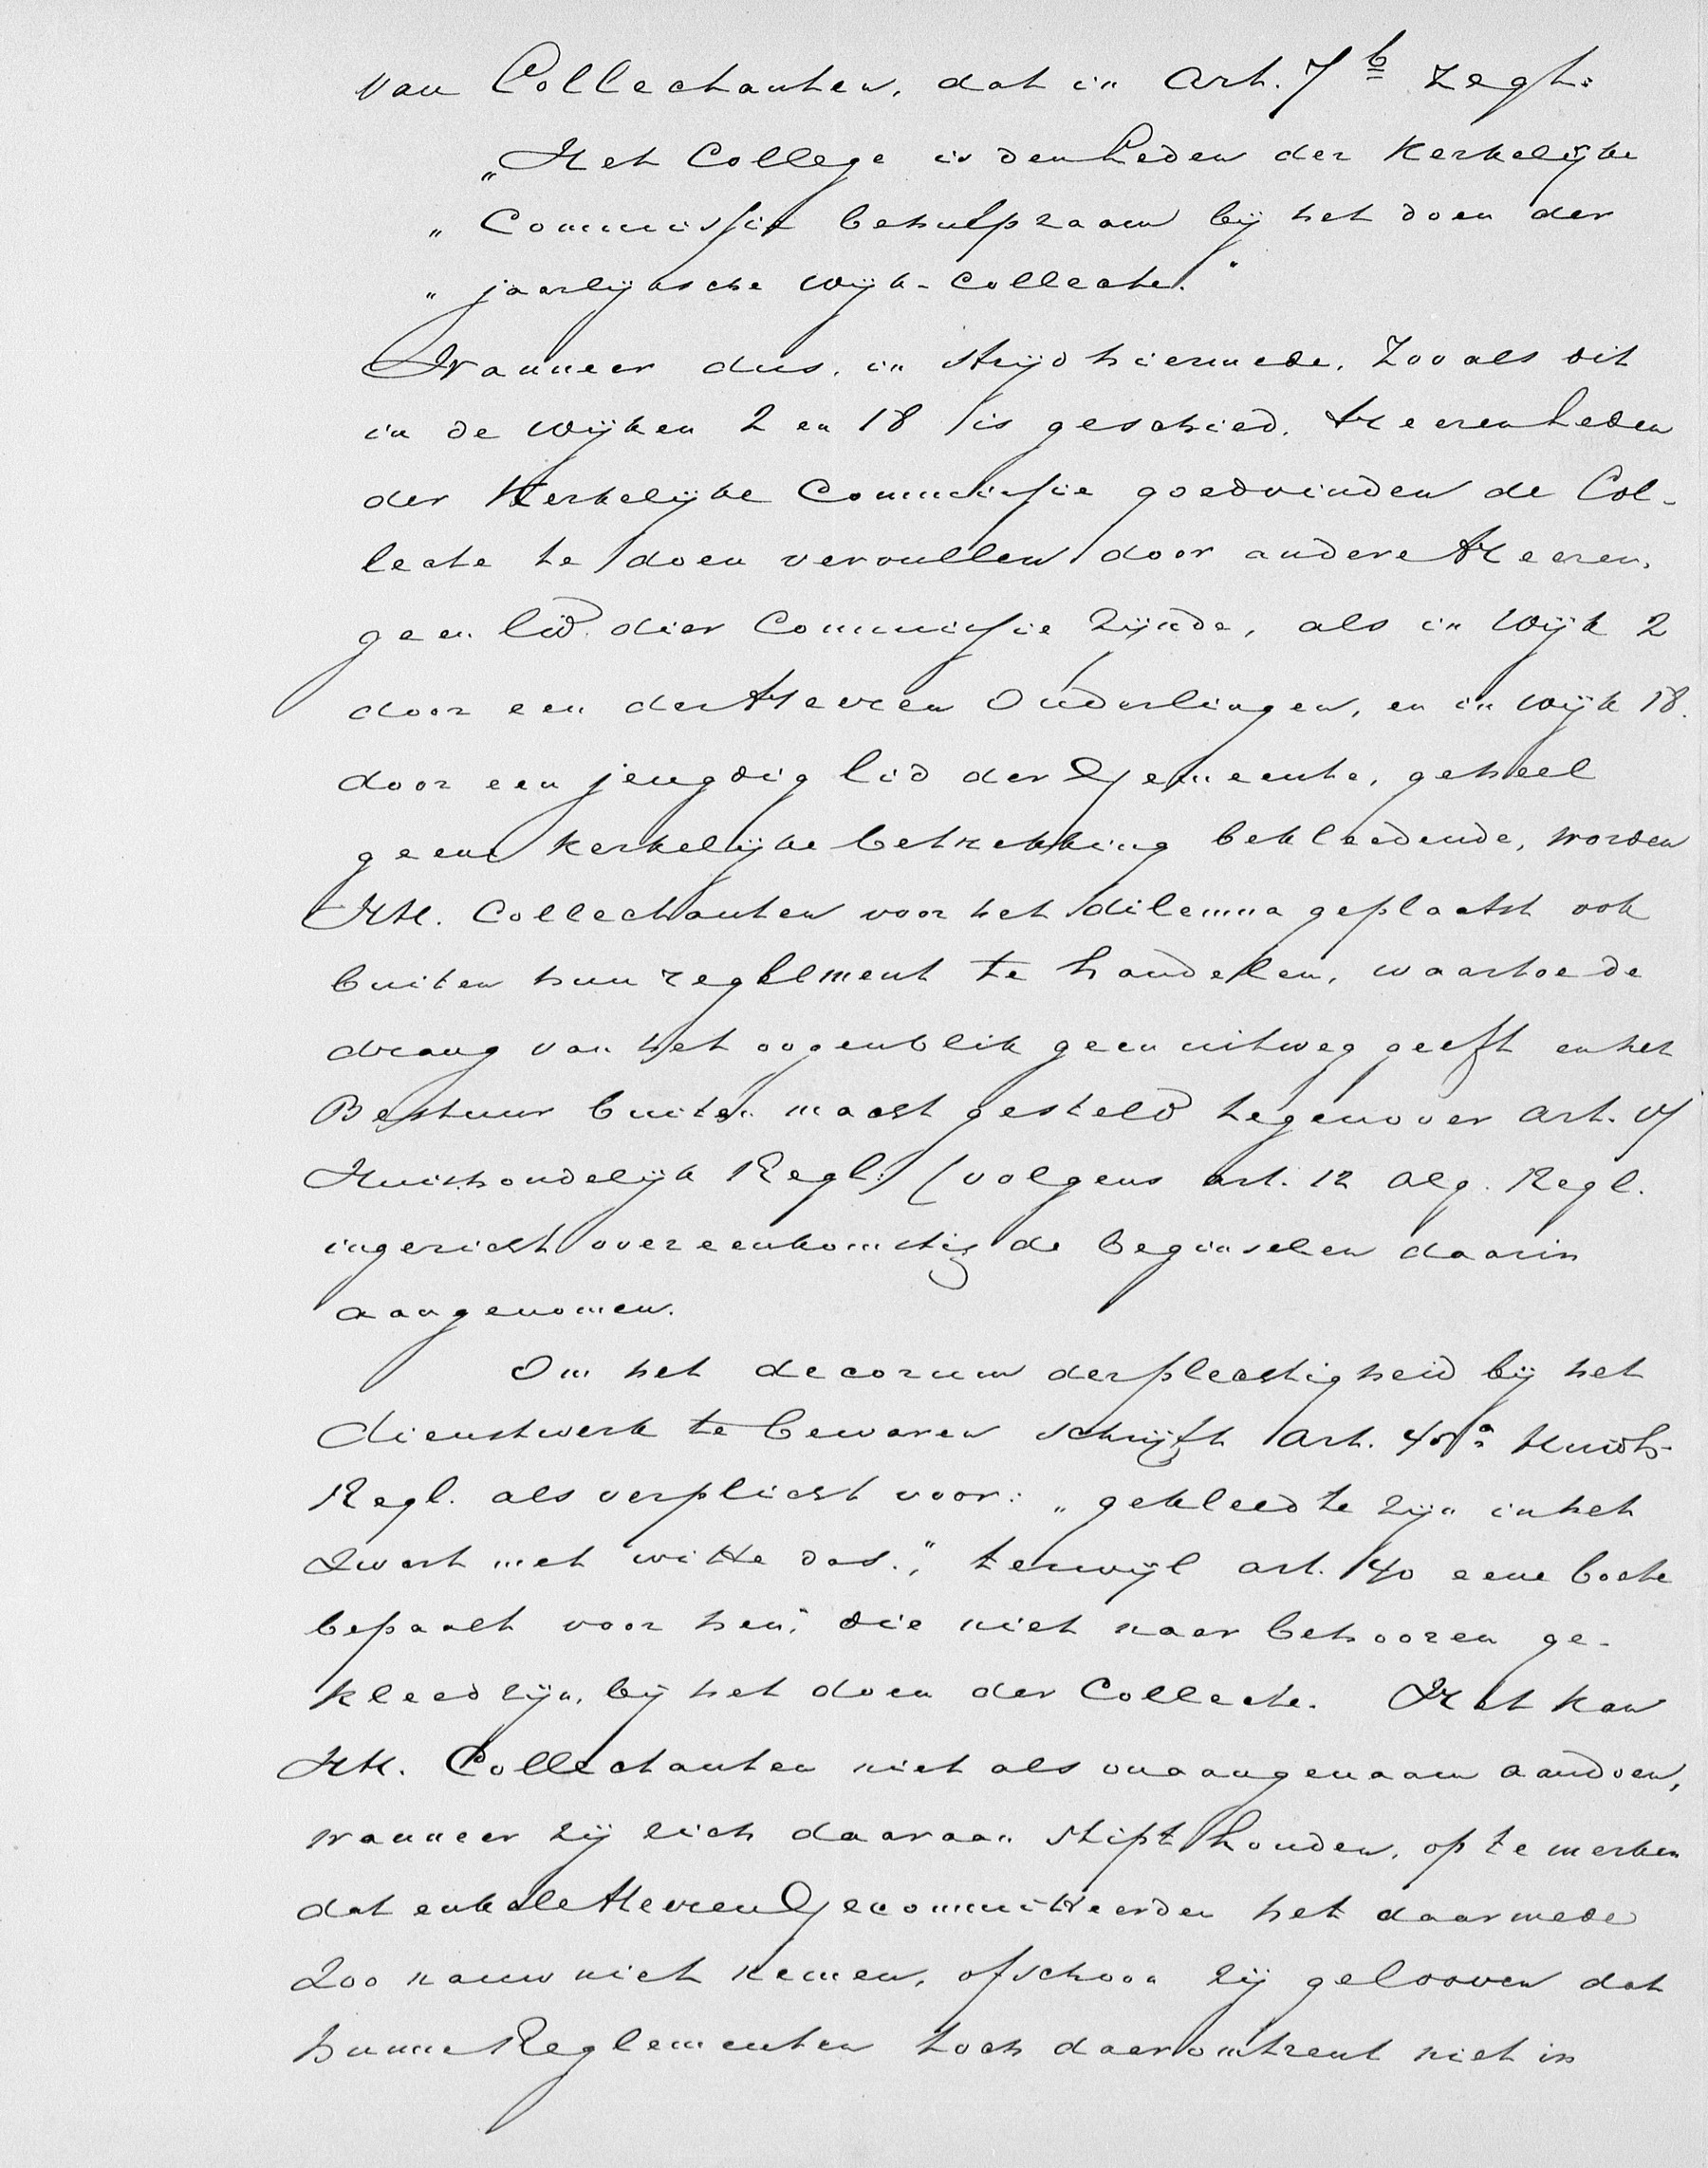 van Collectanten, dat in Art. 7 b zegt:
„Het College is den Leden der Kerkelijke
„Commissie behulpzaam bij het doen der
„jaarlijksche Wijk-Collecte."
Wanneer dus, in strijd hiermede, zooals dit
in de wijken 2 en 18 is geschied, Heeren Leden
der Kerkelijke Commissie goedvinden de Col-
lecte te doen vervullen door andere Heeren,
geen lid dier Commissie zijnde, als in Wijk 2
door een der Heeren Ouderlingen, en in Wijk 18.
door een jeugdig lid der Gemeente, geheel
geene Kerkelijke betrekking bekleedende, worden
HH. Collectanten voor het dilemma geplaatst ook
buiten hun reglement te handelen, waartoe de
drang van het oogenblik geen uitweg geeft en het
Bestuur buiten macht gesteld tegenover Art.
Huishoudelijk Regl: (volgens art. 12 Alg. Regl.
ingericht overeenkomstig de beginselen daarin
aangenomen.
Om het decorum der plechtigheid bij het
dienstwerk te bewaren schrijft Art. Huish-
Regl. als verplicht voor: „gekleed te zijn in het
Zwart met witte das.", terwijl art. 40 eene boete
bepaalt voor hen, die niet naar behooren ge-
kleed zijn, bij het doen der Collecte. Het kan
HH. Collectanten niet als onaangenaam aandoen,
wanneer zij zich daaraan stipt houden, op te merken
dat enkele Heeren Gecommitteerden het daarmede
zoo nauw niet nemen, ofschoon zij gelooven dat
hunne Reglementen toch daaromtrent niet in